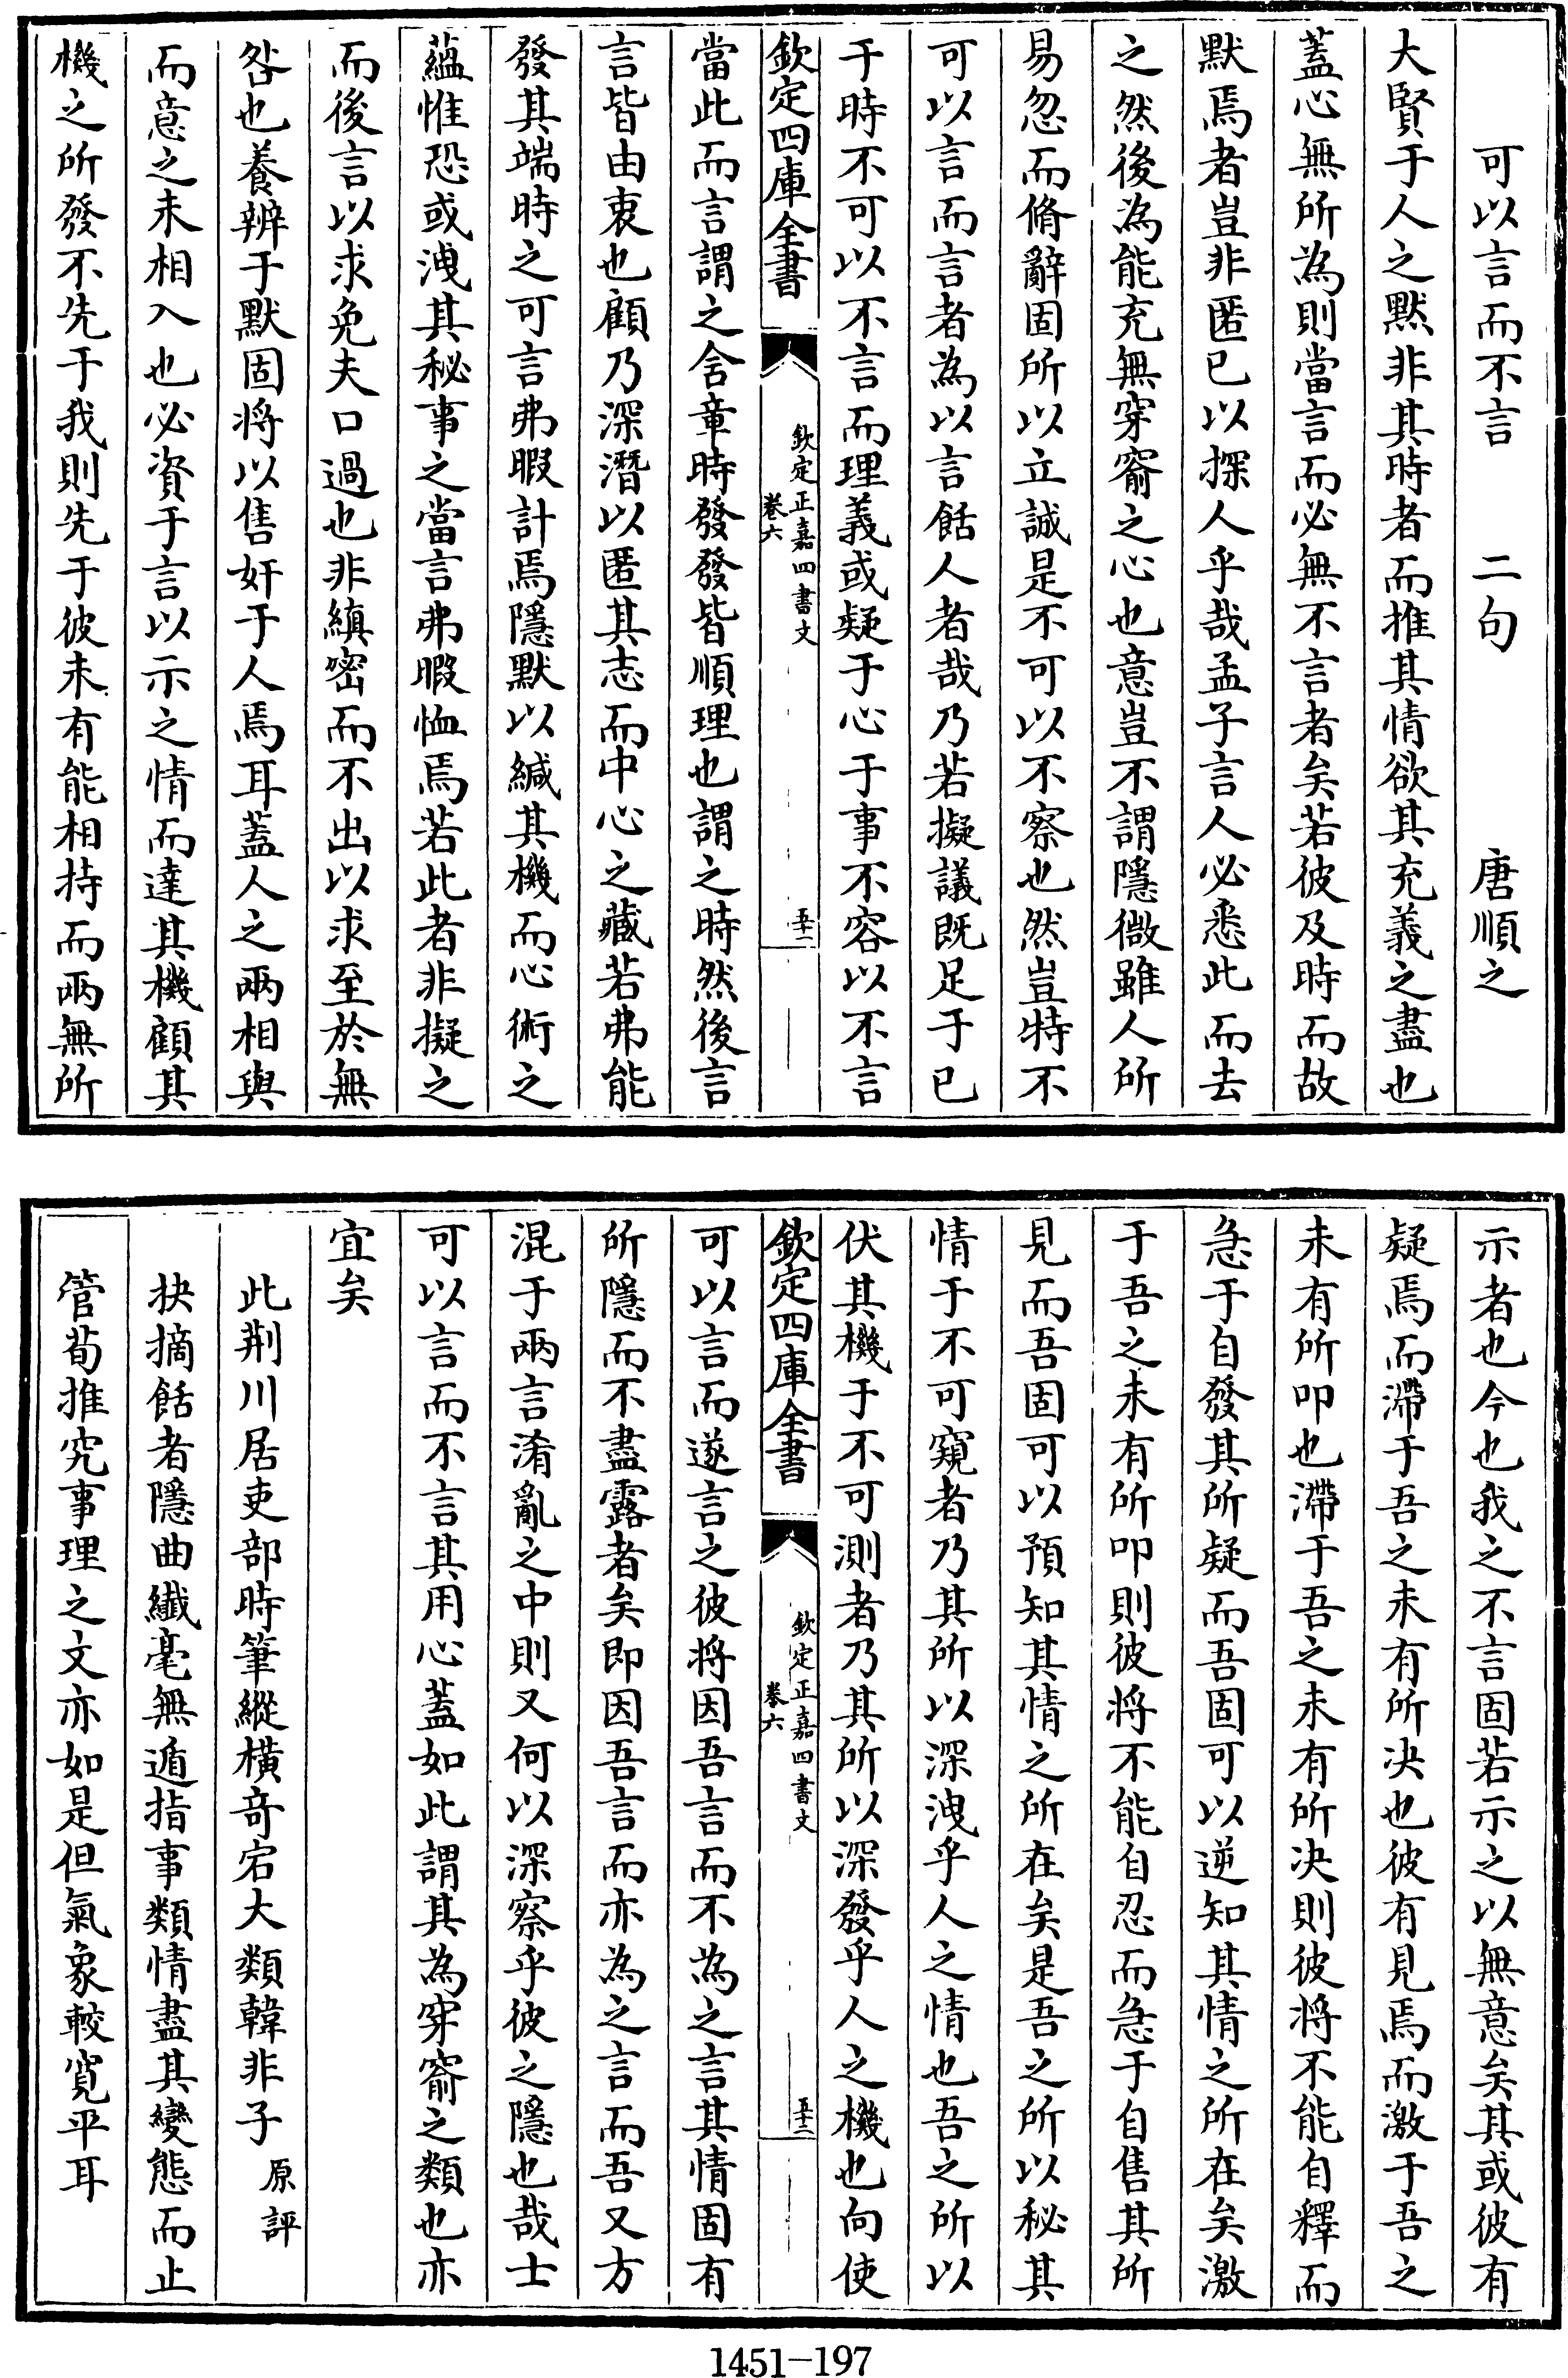 可以言而不言　二句　唐順之
大賢于人之默非其時者而推其情欲其充義之盡也
蓋心無所為則當言而必無不言者矣若彼及時而故
默焉者豈非匿已以探人乎哉孟子言人必悉此而去
之然後為能充無穿窬之心也意豈不謂隱微雖人所
易忽而脩辭固所以立誠是不可以不察也然豈特不
可以言而言者為以言餂人者哉乃若擬議既足于已
于時不可以不言而理義或疑于心于事不容以不言
欽定四庫全書
欽定正嘉四書文
卷六
五十一
當此而言謂之含章時發發皆順理也謂之時然後言
言皆由衷也顧乃深潛以匿其志而中心之藏若弗能
發其端時之可言弗暇計焉隱默以緘其機而心術之
蘊惟恐或洩其秘事之當言弗暇恤焉若此者非擬之
而後言以求免夫口過也非縝密而不出以求至於無
咎也養辨于默固將以售奸于人焉耳蓋人之兩相與
而意之未相入也必資于言以示之情而達其機顧其
機之所發不先于我則先于彼未有能相持而兩無所
示者也今也我之不言固若示之以無意矣其或彼有
疑焉而滯于吾之未有所决也彼有見焉而激于吾之
未有所叩也滯于吾之未有所决則彼將不能自釋而
急于自發其所疑而吾固可以逆知其情之所在矣激
于吾之未有所叩則彼將不能自忍而急于自售其所
見而吾固可以預知其情之所在矣是吾之所以秘其
情于不可窺者乃其所以深洩乎人之情也吾之所以
伏其機于不可測者乃其所以深發乎人之機也向使
欽定四庫全書
欽定正嘉四書文
卷六
五十二
可以言而遂言之彼將因吾言而不為之言其情固有
所隱而不盡露者矣即因吾言而亦為之言而吾又方
混于兩言淆亂之中則又何以深察乎彼之隱也哉士
可以言而不言其用心蓋如此謂其為穿窬之類也亦
宜矣
此荆川居吏部時筆縱橫奇宕大類韓非子原評
抉摘餂者隱曲纖毫無遁指事類情盡其變態而止
管荀推究事理之文亦如是但氣象較寬平耳
1451-197